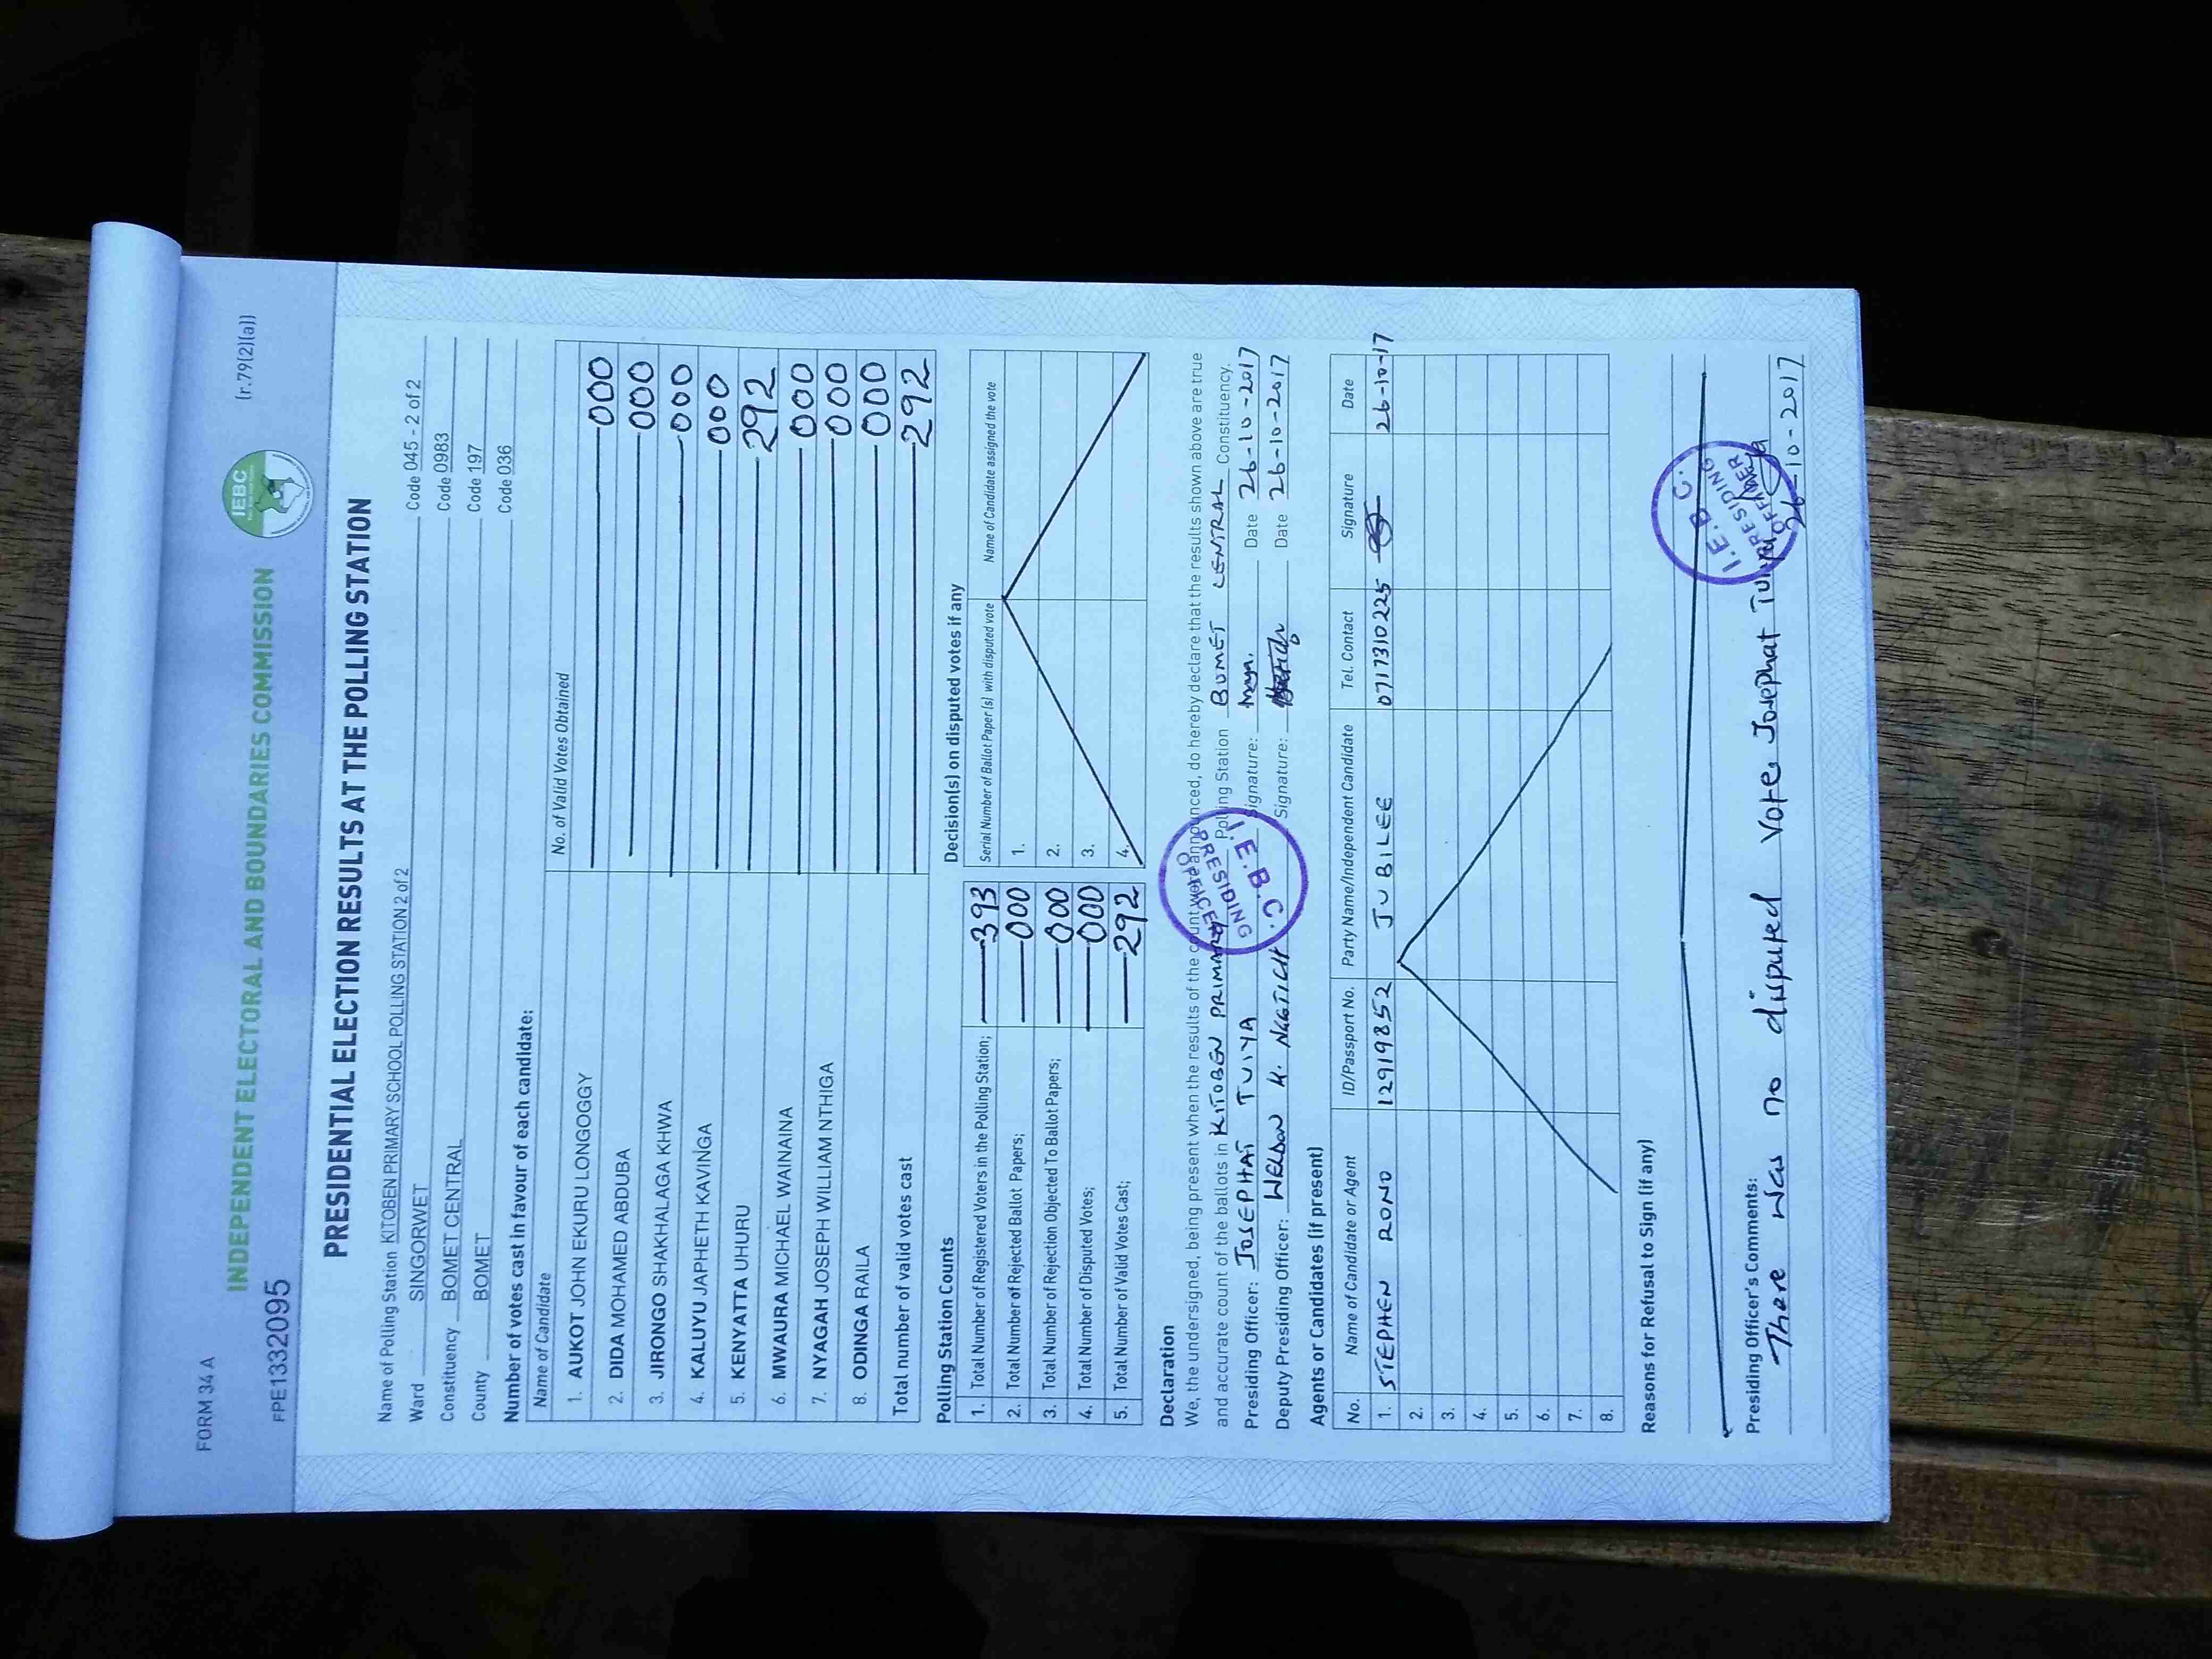 FORM 34 A
(r.79(2)(a))
IEBC
INDEPENDENT ELECTORAL AND BOUNDARIES COMMISSION
FPE1332095
PRESIDENTIAL ELECTION RESULTS AT THE POLLING STATION
Name of Polling Station KITOBEN PRIMARY SCHOOL POLLING STATION 2 of 2 Code 045 - 2 of 2
Ward SINGORWET Code 0983
Constituency BOMET CENTRAL Code 197
County BOMET Code 036
Number of votes cast in favour of each candidate:
Name of Candidate No. of Valid Votes Obtained
1. AUKOT JOHN EKURU LONGOGGY 000
2. DIDA MOHAMED ABDUBA 000
3. JIRONGO SHAKHALAGA KHWA 000
4. KALUYU JAPHETH KAVINGA 000
5. KENYATTA UHURU 292
6. MWAURA MICHAEL WAINAINA 000
7. NYAGAH JOSEPH WILLIAM NTHIGA 000
8. ODINGA RAILA 000
Total number of valid votes cast 292
Polling Station Counts Decision(s) on disputed votes if any
Serial Number of Ballot Paper (s) with disputed vote Name of Candidate assigned the vote
1. Total Number of Registered Voters in the Polling Station; 393 1.
2. Total Number of Rejected Ballot Papers; 000 2.
3. Total Number of Rejection Objected To Ballot Papers; 000 3.
4. Total Number of Disputed Votes; 000 4.
5. Total Number of Valid Votes Cast; 292
Declaration
We, the undersigned, being present when the results of the count were announced, do hereby declare that the results shown above are true
and accurate count of the ballots in KITOBEN PRIMARY Polling Station BOMET CENTRAL Constituency.
Presiding Officer: JOSEPHAT TUIYA Signature: Date 26-10-2017
Deputy Presiding Officer: WELDON K. NGETICH Signature: Date 26-10-2017
I.E.B.C.
PRESIDING
OFFICER
Agents or Candidates (if present)
No. Name of Candidate or Agent ID/Passport No. Party Name/Independent Candidate Tel. Contact Signature Date
1. STEPHEN RONO 12919852 JUBILEE 0717310225 26-10-17
2.
3.
4.
5.
6.
7.
8.
Reasons for Refusal to Sign (if any)
Presiding Officer's Comments:
There was no disputed vote. Josephat Tuiya
26-10-2017
I.E.B.C.
PRESIDING
OFFICER